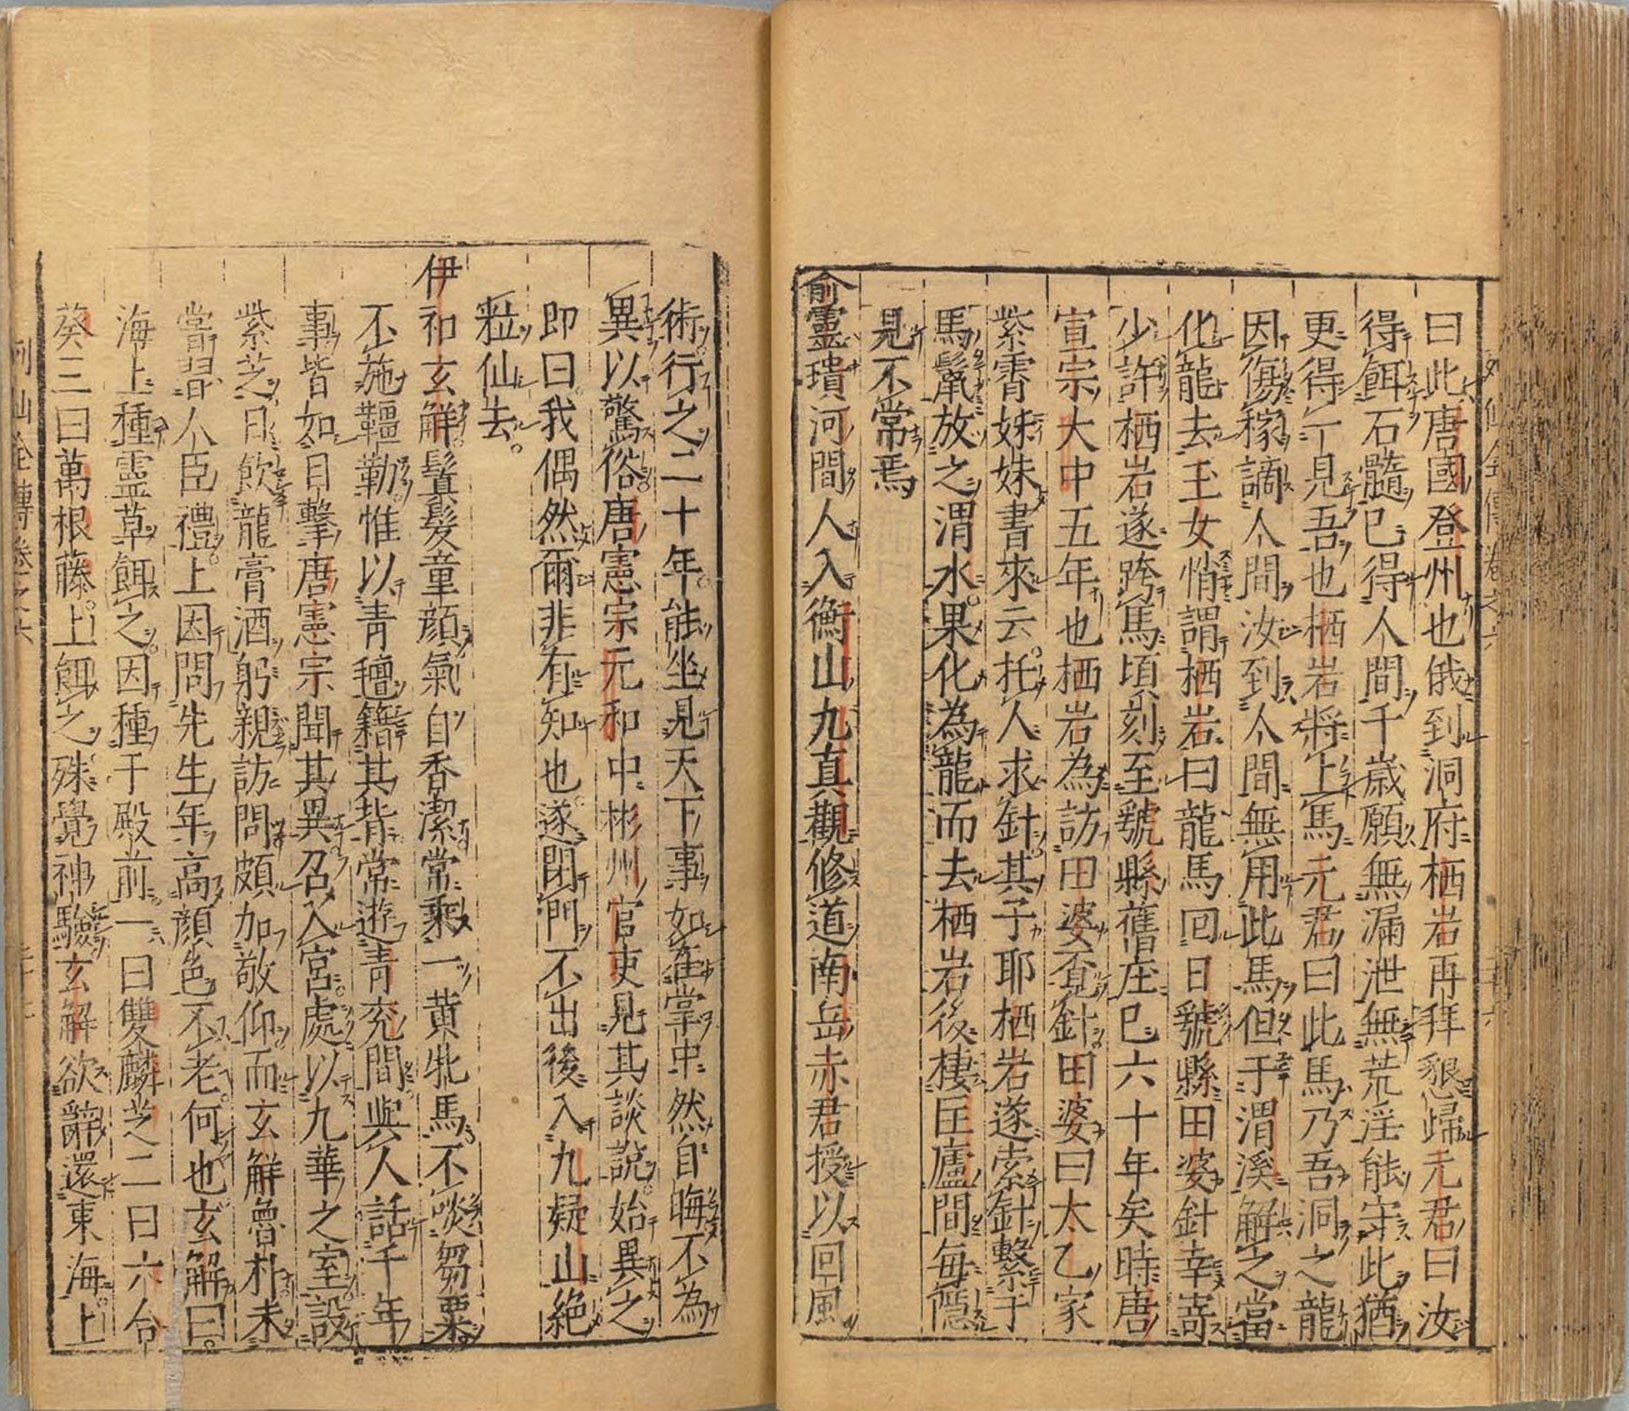 曰此唐國登州也俄到洞府栖岩再拜懇歸元君曰汝
得餌石髓已得人間千歲願無漏泄無荒淫能守此猶
更得一見吾也栖岩將上馬元君曰此馬乃吾洞之龍
因傷稼謫人間汝到人間無用此馬但于渭溪解之當
化龍去玉女悄謂栖岩曰龍馬回日號縣田婆針幸寄
少許栖岩遂跨馬頃刻至號縣舊庄已六十年矣時唐
宣宗大中五年也栖岩為訪田婆覔針田婆曰太乙家
紫霄姊妹書來云托人求針其子耶栖岩遂索針繫于
馬鬣放之渭水果化為龍而去栖岩後棲匡廬間每隱
見不常焉
俞靈璝河間人入衡山九真觀修道南岳赤君授以回風
術行之二十年能坐見天下事如在掌中然自晦不為
異以驚俗唐憲宗元和中彬州官吏見其談說始異之
即曰我偶然爾非有知也遂閉門不出後入九疑山絕
粒仙去
伊祁玄解鬒髮童顏氣自香潔常乘一黃牝馬不啖芻粟
不施韁勒惟以青氊籍其背常遊青兖間與人話千年
事皆如目擊唐憲宗聞其異召入宮處以九華之室設
紫芝日飲龍膏酒躬親訪問頗加敬仰而玄解魯朴未
嘗習人臣禮上因問先生年高顏色不老何也玄解曰
海上種靈草餌之因種于殿前一曰雙麟芝二曰六合
葵三曰萬根藤上餌之殊覺神驗玄解欲辭還東海上